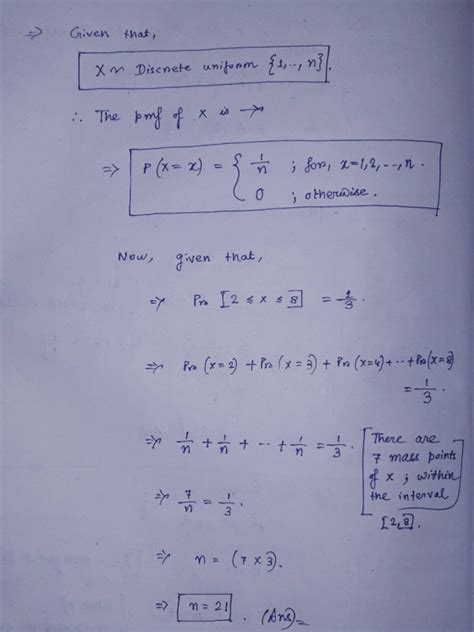 ⇒ Given that,
X ~ Discrete uniform {1,.., n}.
∴ The pmf of x is →
⇒ P(X = x) = { 1/n ; for, x=1,2,--,n.
0 ; otherwise.
Now, given that,
⇒ Pr [2 ≤ x ≤ 8] = 1/3.
⇒ Pr (x=2) + Pr (x=3) + Pr (x=4) + -- + Pr(x=8)
= 1/3.
⇒ 1/n + 1/n + -- + 1/n = 1/3. [There are
7 mass points
of x ; within
the interval
[2,8].
⇒ 7/n = 1/3.
⇒ n = (7 × 3).
⇒ n = 21. (Ans)